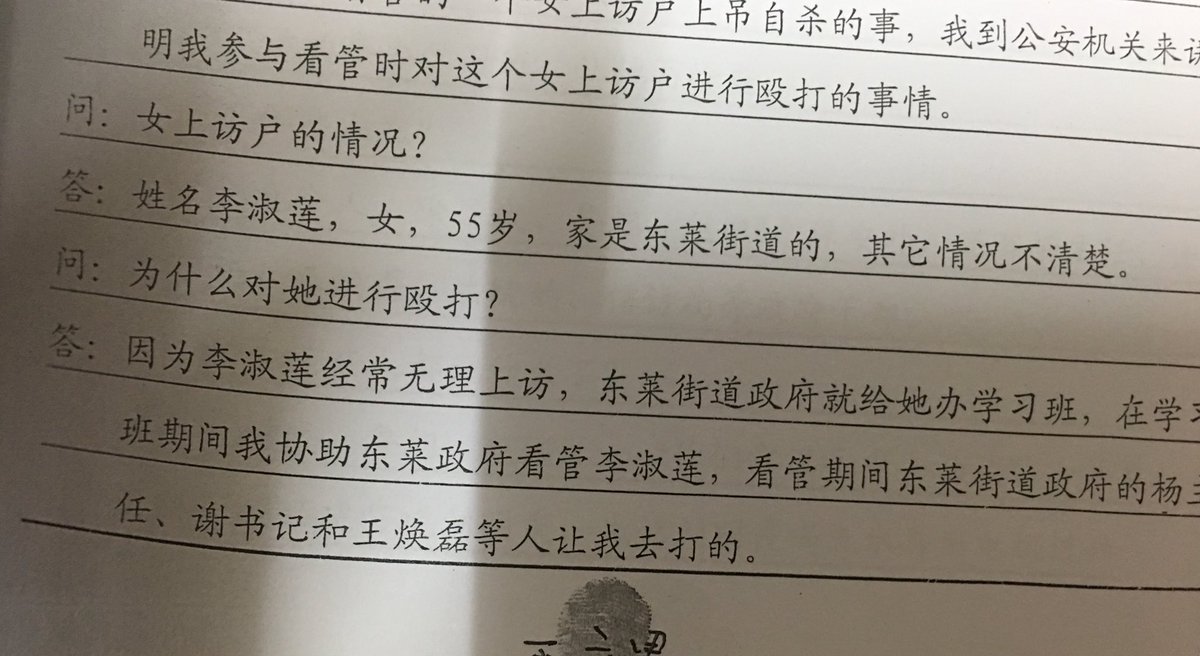 个女上访户上吊自杀的事，我到公安机关来
明我参与看管时对这个女上访户进行殴打的事情。
问：女上访户的情况？
答：姓名李淑莲，女，55岁，家是东莱街道的，其它情况不清楚。
问：为什么对她进行殴打？
答：因为李淑莲经常无理上访，东莱街道政府就给她办学习班，在学习
班期间我协助东莱政府看管李淑莲，看管期间东莱街道政府的杨主
任、谢书记和王焕磊等人让我去打的。